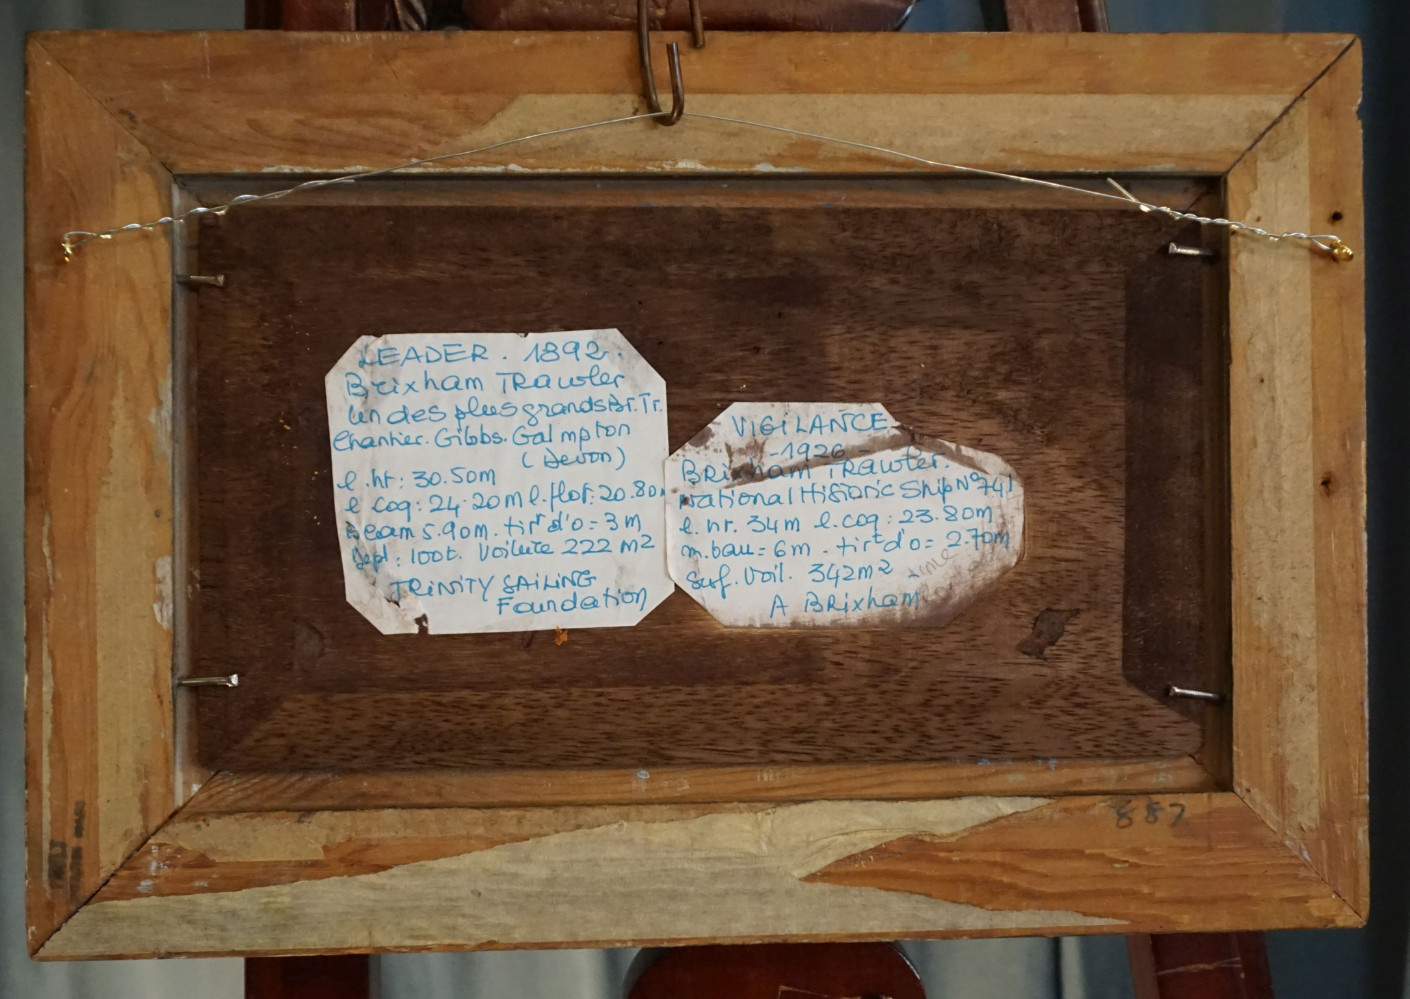 LEADER. 1892.
Brixham Trawler
un des plus grands Br. Tr.
Chantier. Gibbs. Galmpton
(Devon)
l. ht: 30.50m
l coq: 24.20m l. flot: 20.80m
Beam 5.90m. tirt d'o = 3m
Depl: 100t. Voilure 222 m2
TRINITY SAILING
Foundation
VIGILANCE
-1926-
Brixham Trawler.
National Historic Ship N°741
l. hr. 34m l. coq: 23.80m
m. bau = 6m. tirt d'o = 2.70m
Surf. Voil. 342m2
A Brixham
887